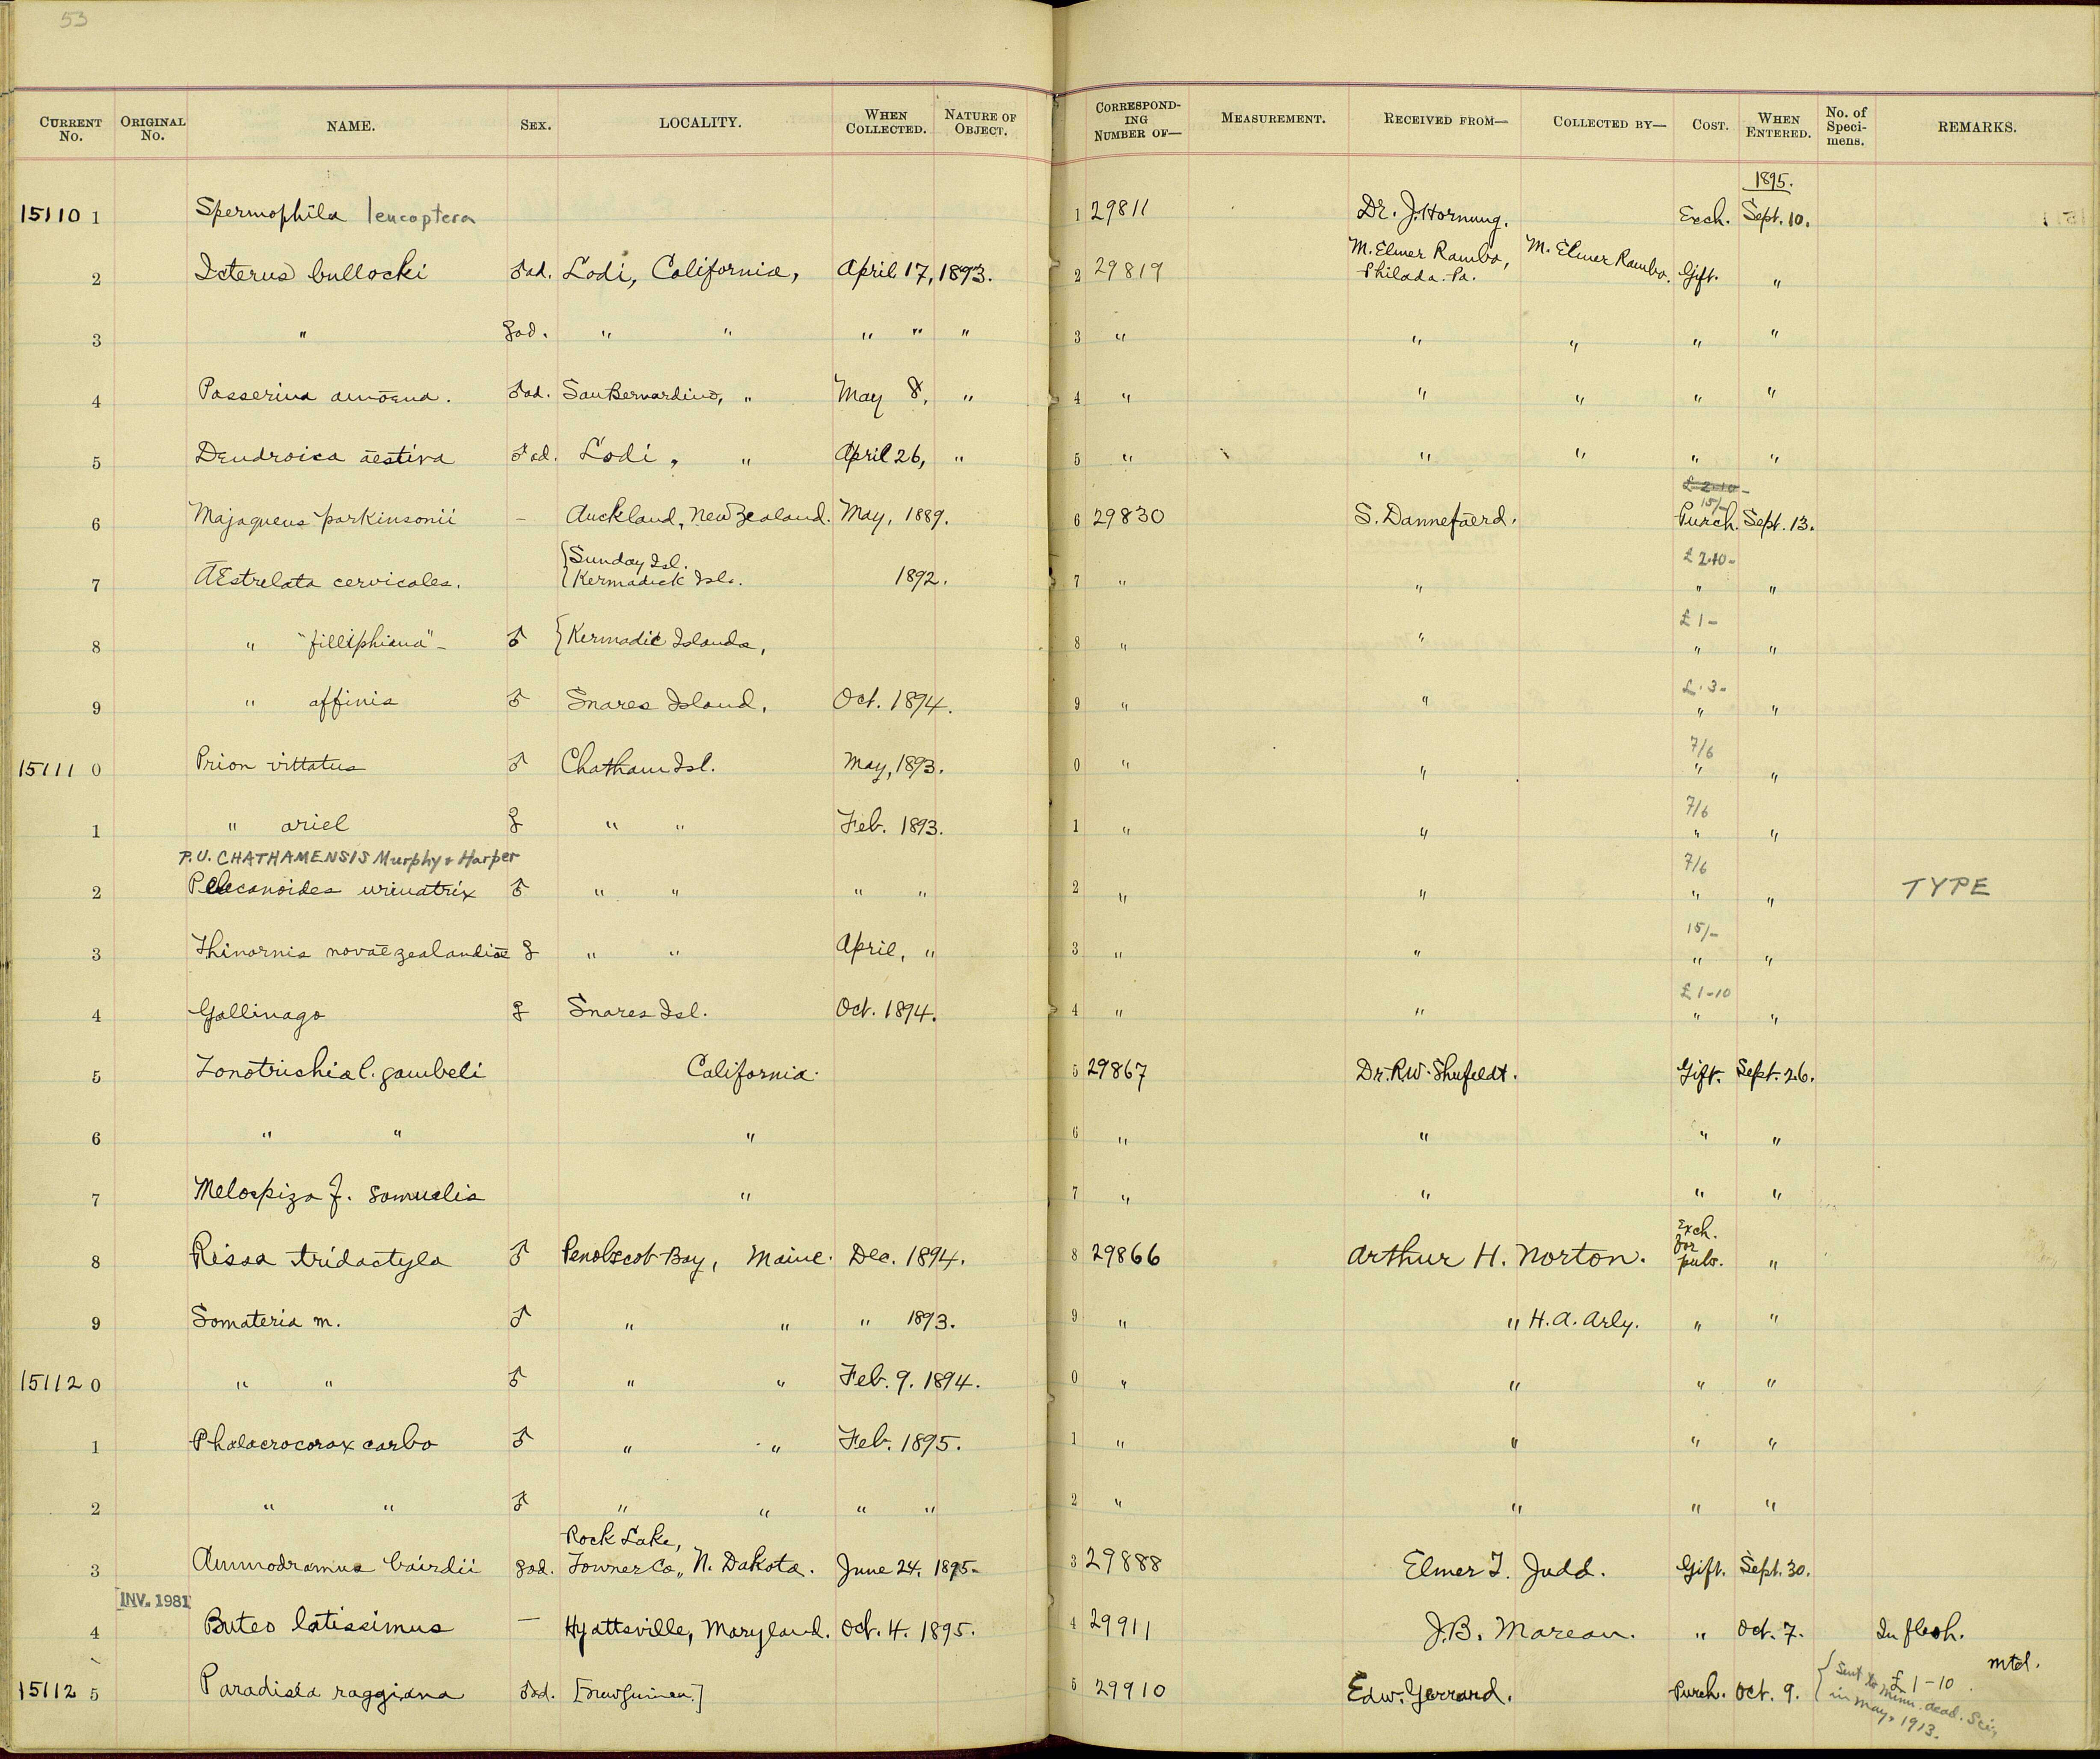 53
CURRENT No. ORIGINAL No. NAME. SEX. LOCALITY. WHEN COLLECTED. NATURE OF OBJECT. CORRESPONDING NUMBER OF— MEASUREMENT. RECEIVED FROM— COLLECTED BY— COST. WHEN ENTERED. No. of Specimens. REMARKS.
1895.
15110 1 Spermophila leucoptera 1 29811 Dr. J. Hornung. Exch. Sept. 10.
2 Icterus bullocki ♂ad. Lodi, California, April 17, 1893. 2 29819 M. Elmer Rambo, Philada. Pa. M. Elmer Rambo. Gift. "
3 " ♀ad. " " " " " 3 " " " " "
4 Passerina amoena. ♂ad. San Bernardino, " May 8, " 4 " " " " "
5 Dendroica aestiva ♂ad. Lodi, " April 26, " 5 " " " " "
£ 2-10-
15/-
6 Majaqueus parkinsonii – Auckland, New Zealand. May, 1889. 6 29830 S. Dannefaerd. Purch. Sept. 13.
£ 2.10-
7 AEstrelata cervicales. {Sunday Isl. Kermadeck Isls. 1892. 7 " " " "
£ 1-
8 " "filliphiana"- ♂ {Kermadic Islands, 8 " " " "
£ . 3-
9 " affinis ♂ Snares Island, Oct. 1894. 9 " " " "
7/6
15111 0 Prion vittatus ♂ Chatham Isl. May, 1893. 0 " " " "
7/6
1 " ariel ♀ " " Feb. 1893. 1 " " " "
P.U. CHATHAMENSIS Murphy & Harper
7/6
2 Pelecanoides urinatrix ♂ " " " " 2 " " " " TYPE
15/-
3 Thinornis novaezealandiae ♀ " " April, " 3 " " " "
£ 1-10
4 Gallinago ♀ Snares Isl. Oct. 1894. 4 " " " "
5 Zonotrichia l. gambeli California. 5 29867 Dr. R.W. Shufeldt. Gift. Sept. 26.
6 " " " 6 " " " "
7 Melospiza f. samuelis " 7 " " " "
8 Rissa tridactyla ♂ Penobscot Bay, Maine. Dec. 1894. 8 29866 Arthur H. Norton. Exch. for pubs. "
9 Somateria m. ♂ " " " 1893. 9 " " H. A. Arly. " "
15112 0 " " ♂ " " Feb. 9. 1894. 0 " " " "
1 Phalacrocorax carbo ♂ " " Feb. 1895. 1 " " " "
2 " " ♂ " " " " 2 " " " "
3 Ammodramus bairdii ♀ad. Rock Lake, Towner Co., N. Dakota. June 24. 1895. 3 29888 Elmer T. Judd. Gift. Sept. 30.
INV. 1981
4 Buteo latissimus — Hyattsville, Maryland. Oct. 4. 1895. 4 29911 J.B. Marean. " Oct. 7. In flesh.
mtd.
15112 5 Paradisea raggiana ♂ad. [New Guinea.] 5 29910 Edw. Gerrard. Purch. Oct. 9. £ 1-10
{Sent to Minn. Acad. Sci,
in May, 1913.